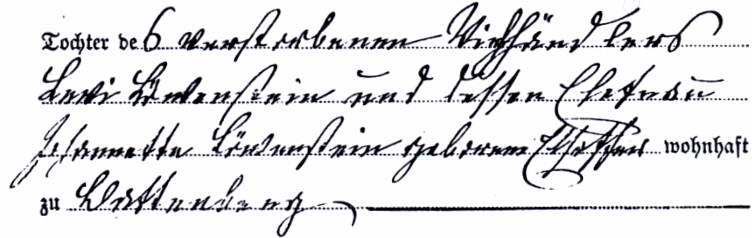 Tochter des verstorbenen Viehhändlers
Levi Löwenstein und dessen Ehefrau
Johannette Löwenstein geborene wohnhaft
zu